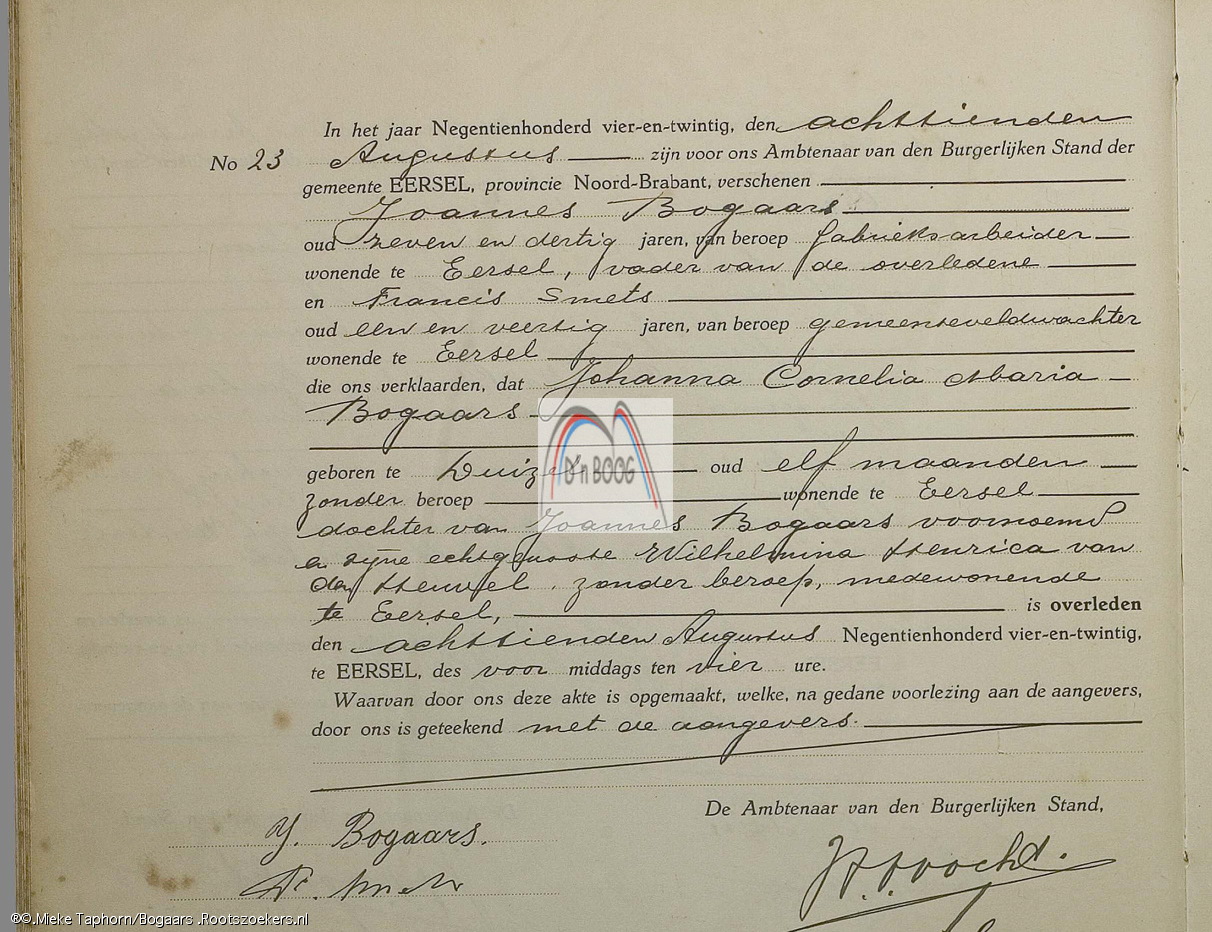 In het jaar Negentienhonderd vier-en-twintig, den achttienden
No 23 Augustus zijn voor ons Ambtenaar van den Burgerlijken Stand der
gemeente EERSEL, provincie Noord-Brabant, verschenen
Joannes Bogaars
oud zeven en dertig jaren, van beroep fabrieksarbeider
wonende te Eersel, vader van de overledene
en Francis Smets
oud een en veertig jaren, van beroep gemeenteveldwachter
wonende te Eersel
die ons verklaarden, dat Johanna Cornelia Maria
Bogaars
geboren te Duizel oud elf maanden
D'n BOOG
zonder beroep wonende te Eersel
dochter van Joannes Bogaars voornoemd
en zijne echtgenoote Wilhelmina Henrica van
den Heuvel zonder beroep, medewonende
te Eersel, is overleden
den achttienden Augustus Negentienhonderd vier-en-twintig,
te EERSEL, des voor middags ten vier ure.
Waarvan door ons deze akte is opgemaakt, welke, na gedane voorlezing aan de aangevers,
door ons is geteekend met de aangevers.
De Ambtenaar van den Burgerlijken Stand,
J. Bogaars.
Fr. Smets
©©.Mieke Taphorn/Bogaars .Rootszoekers.nl